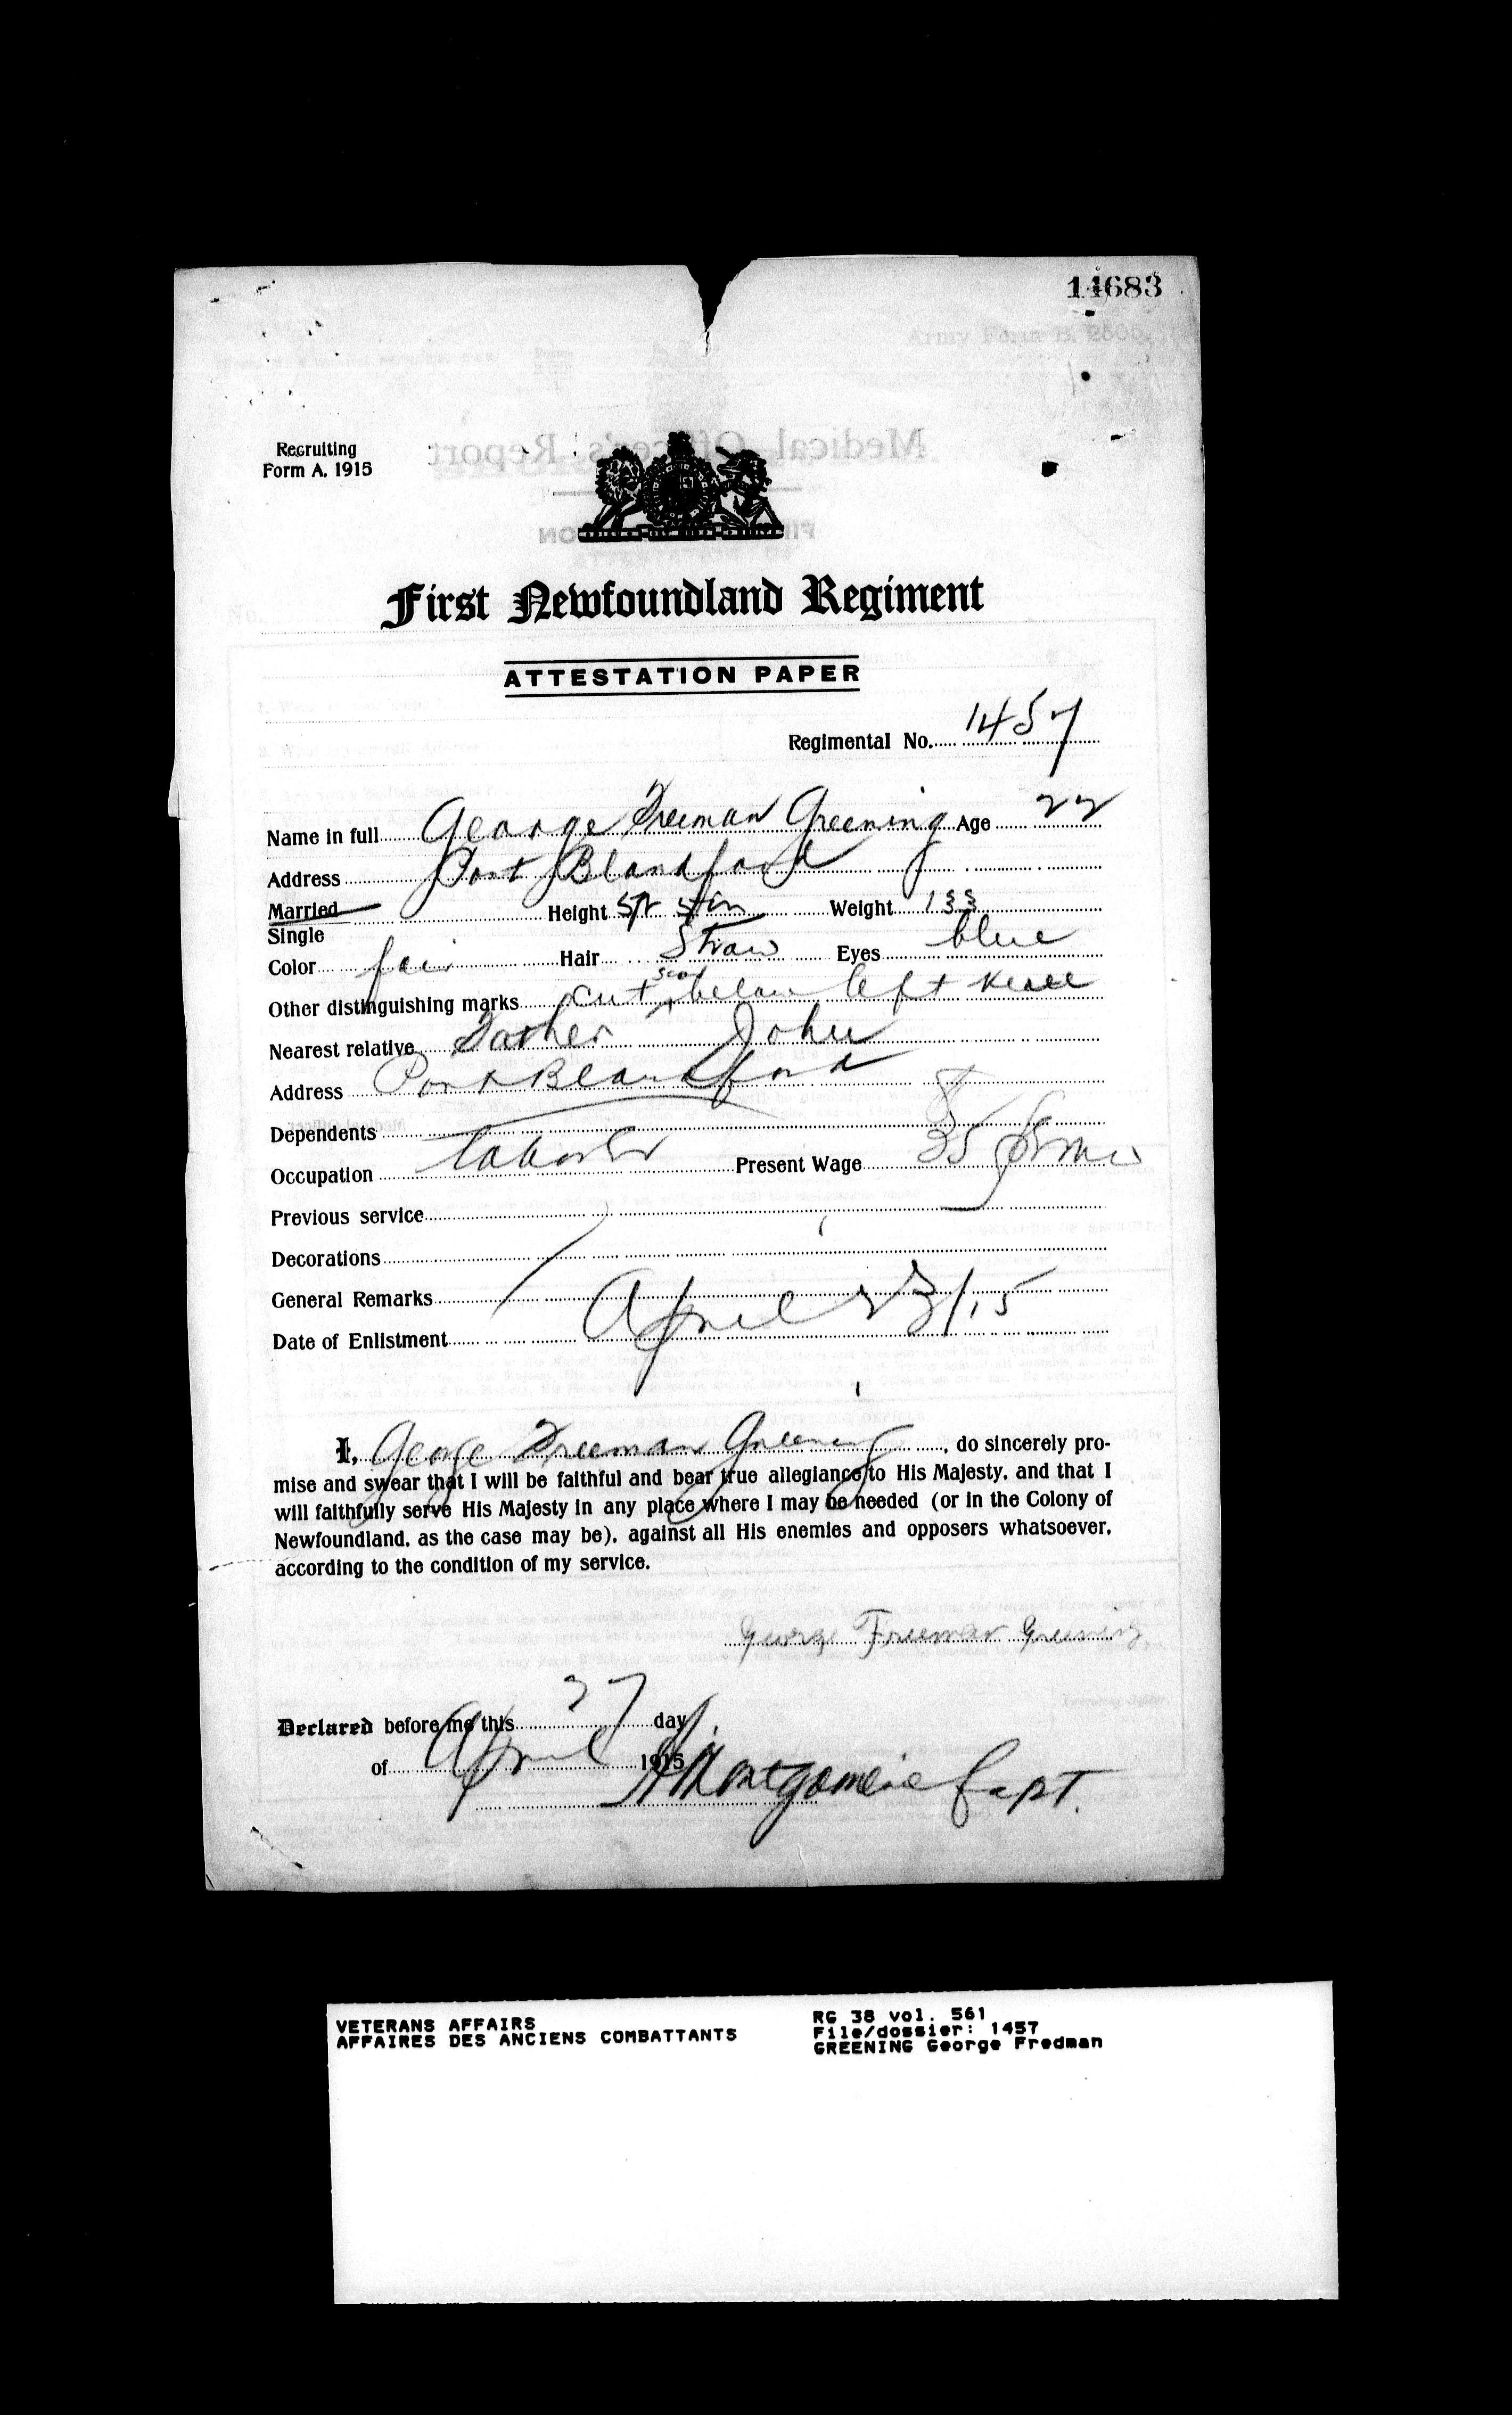 14683
Army Form B.
Recruiting
Form A. 1915
Medical Officer's Report
First Newfoundland Regiment
ATTESTATION PAPER
Regimental No. 1457
Name in full George Freeman Greening Age 22
Address Port Blandford
Married Height 5ft 5in Weight 133
Single
Color fair Hair Straw Eyes blue
scar
Other distinguishing marks cut below left knee
Nearest relative Father John
Address Port Blandford
Dependents
Occupation Laborer Present Wage 35
Previous service
Decorations
General Remarks
Date of Enlistment April 23/15
I, George Freeman Greening, do sincerely pro-
mise and swear that I will be faithful and bear true allegiance to His Majesty, and that I
will faithfully serve His Majesty in any place where I may be needed (or in the Colony of
Newfoundland, as the case may be), against all His enemies and opposers whatsoever,
according to the condition of my service.
George Freeman Greening
Declared before me this 27 day
of April 1915
Montgomerie Capt.
VETERANS AFFAIRS RG 38 vol. 561
AFFAIRES DES ANCIENS COMBATTANTS File/dossier: 1457
GREENING George Fredman